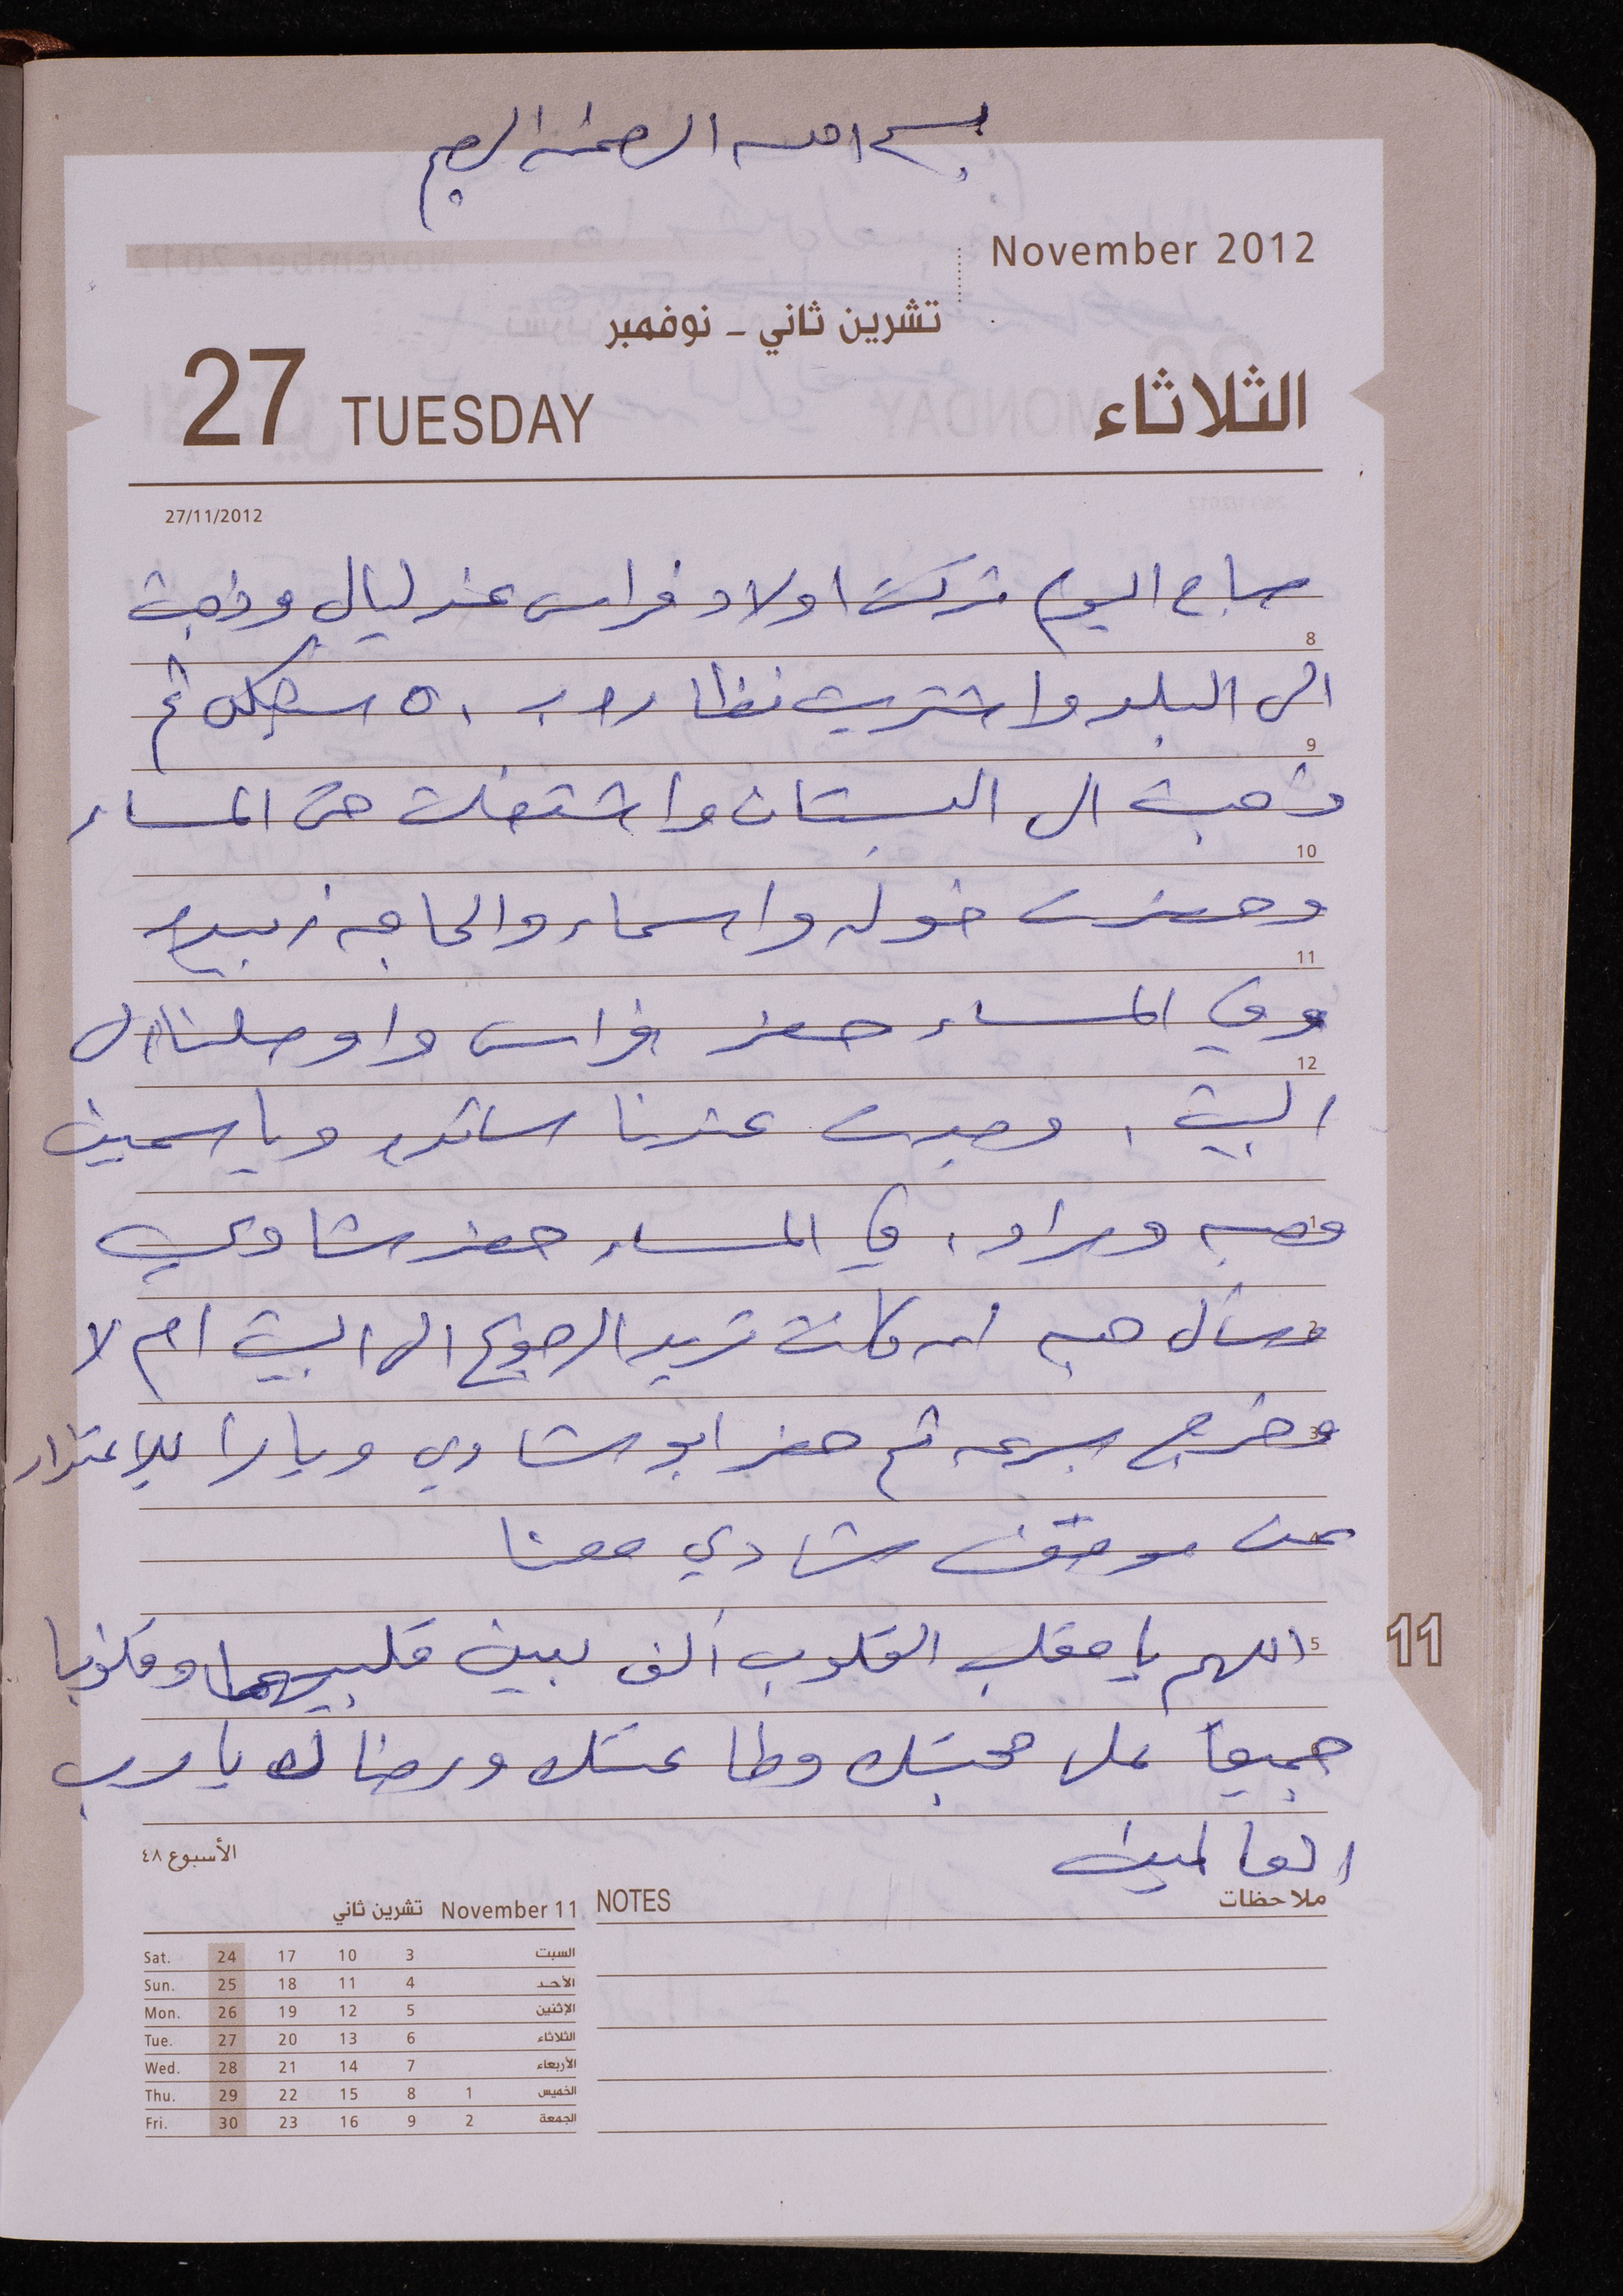 بسم الله الرحمن الرحيم
November 2012
تشرين ثاني - نوفمبر
27 TUESDAY الثلاثاء
27/11/2012
صباح اليوم تركت اولاد فراس عند ليال وذهبت
8
الى البلد واشتريت نظاره ب ٥٠ شيكل ثم
9
ذهبت الى البستان واشتغلت حتى المساء
10
وحضرت خوله واسماء والحاجه زبيده
11
وفي المساء حضر فراس واوصلنا الى
12
البيت . وجدت عندنا ساندره وياسمين
1
وهبه ومراد . في المساء حضر شادي
2
وسأل هبه ان كانت تريد الرجوع الى البيت ام لا
3
وخرج بسرعه ثم حضر ابو شادي ويارا للاعتذار
4
عن موقف شادي معنا
5
اللهم يا مقلب القلوب ألف بين قلبيهما وقلوبنا
11
جميعاً على محبتك وطاعتك ورضاك يا رب
العالمين
الأسبوع ٤٨
ملاحظات NOTES
November 11 تشرين ثاني
Sat. 24 17 10 3 السبت
Sun. 25 18 11 4 الأحد
Mon. 26 19 12 5 الإثنين
Tue. 27 20 13 6 الثلاثاء
Wed. 28 21 14 7 الأربعاء
Thu. 29 22 15 8 1 الخميس
Fri. 30 23 16 9 2 الجمعة